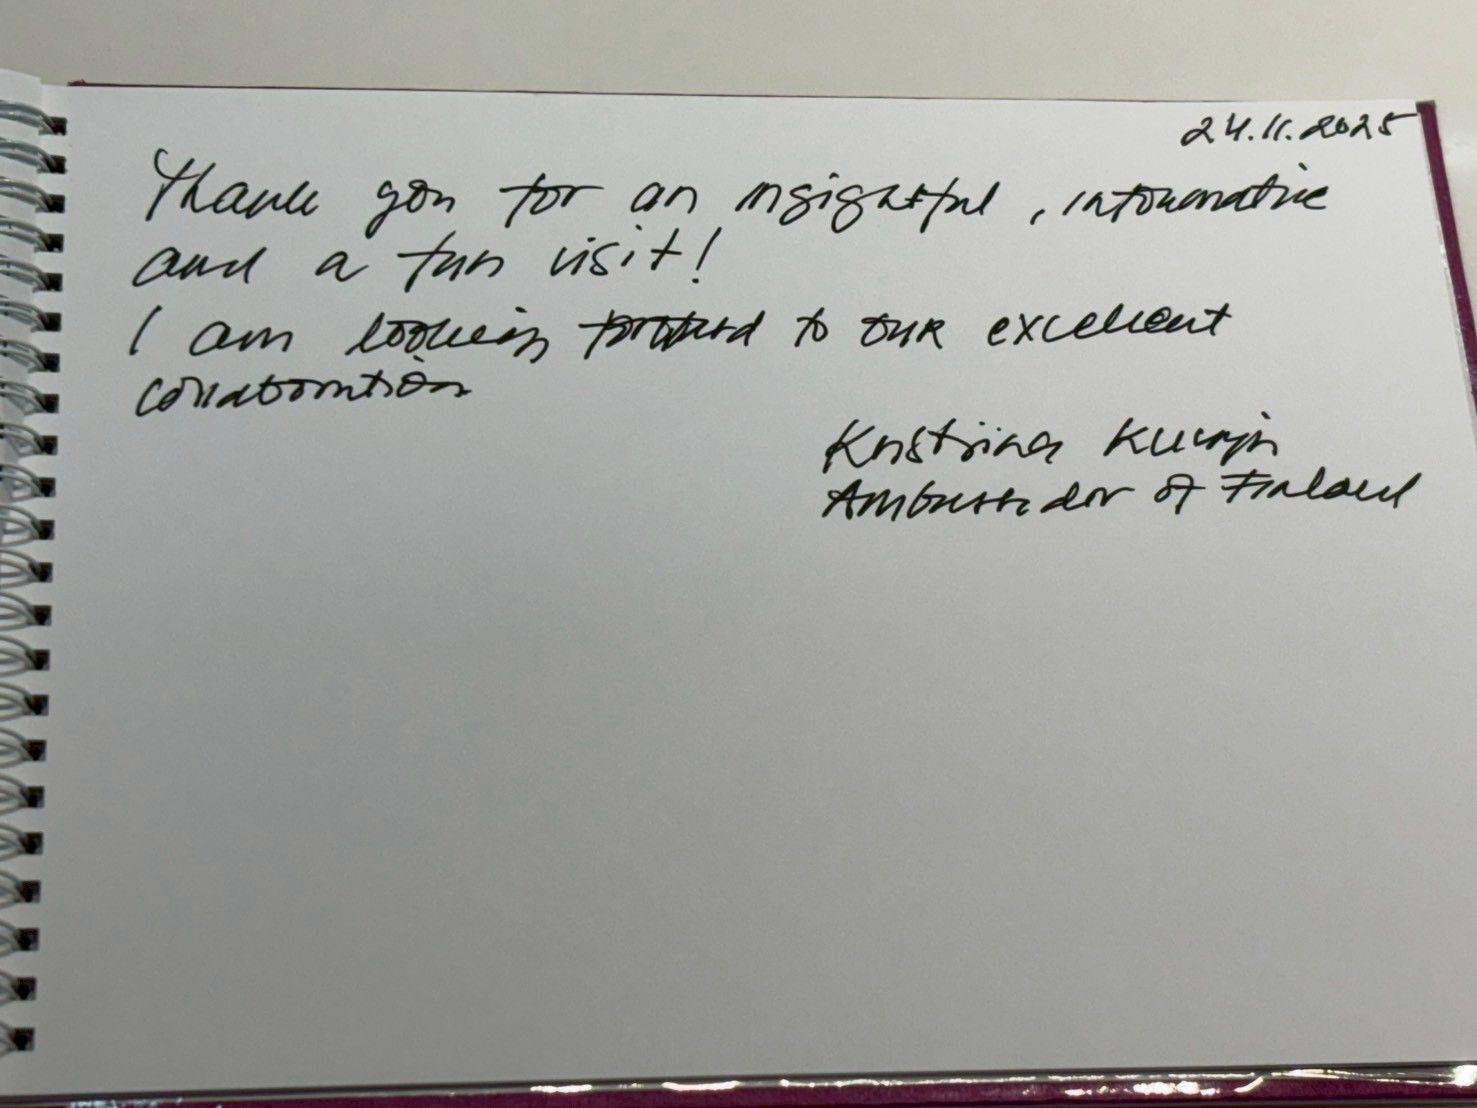 24.11.2025
Thank you for an insightful, informative
and a fun visit!
I am looking forward to our excellent
collaboration
Kristiina
Ambassador of Finland